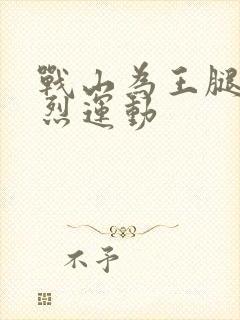 戰山為王腿
烈運動
不予